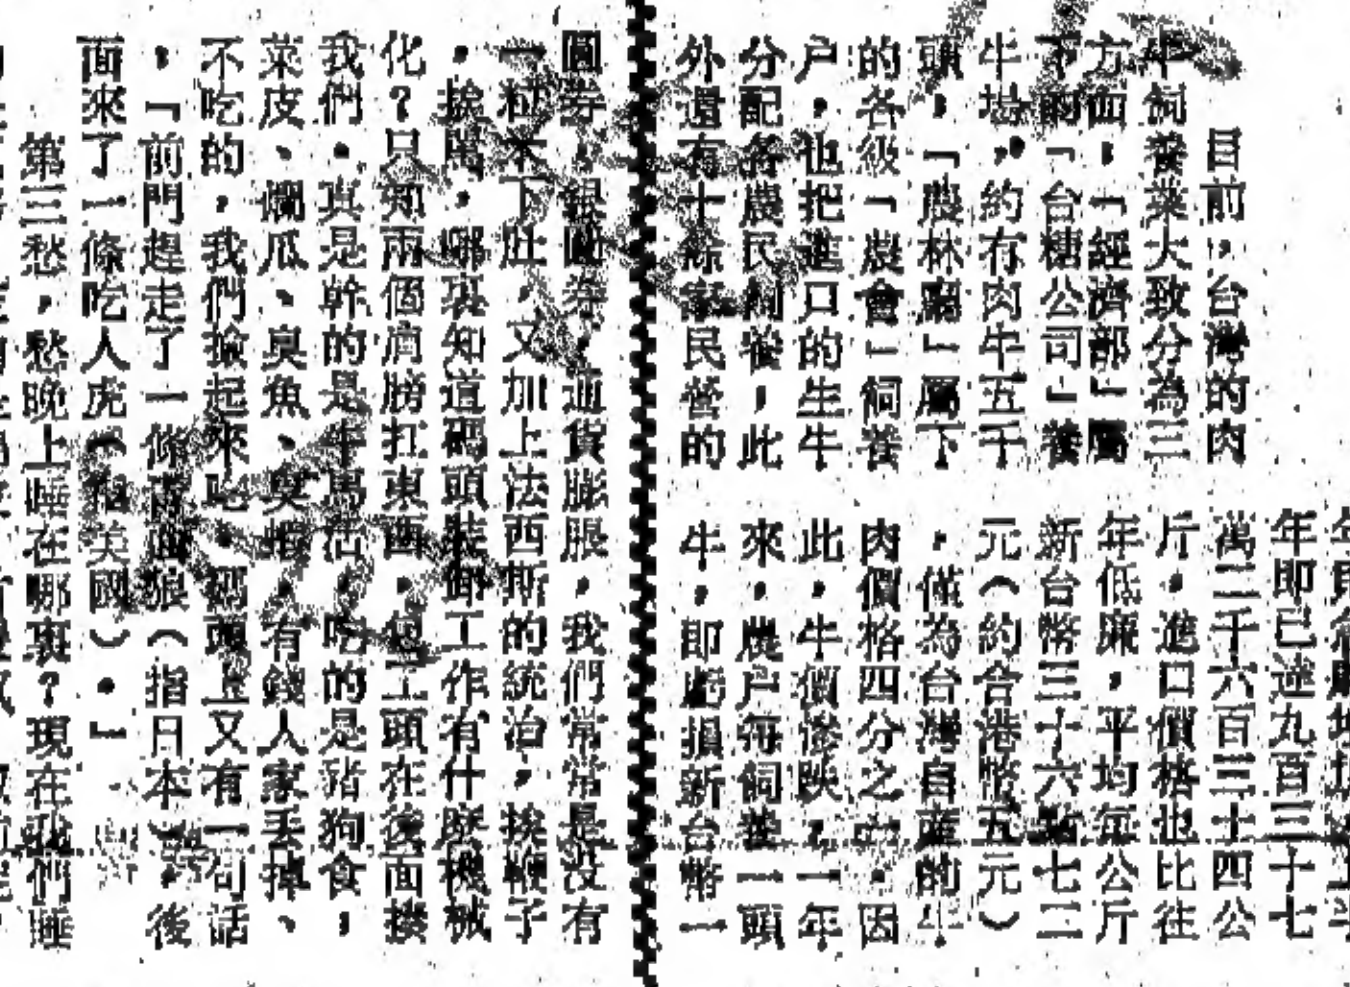 目前，台灣的肉
牛飼養業大致分為三
方面，「經濟部」屬
下的「台糖公司」養
牛場，約有肉牛五千
頭，「農林廳」屬下
的各級「農會」飼養
户，也把進口的生牛
分配各農民飼養，此
外還有十餘家民營的
年即已達九百三十七
萬二千六百三十四公
斤，進口價格也比往
年低廉，平均每公斤
新台幣三十六點七二
元（約合港幣五元）
，僅為台灣自產的牛
肉價格四分之一。因
此，牛價慘跌，一年
來，農户每飼養一頭
牛，即虧損新台幣一
圓券、銀圓券，通貨膨脹，我們常常是没有
一粒米下肚，又加上法西斯的統治，挨鞭子
，挨罵，哪裏知道碼頭裝卸工作有什麽機械
化？只知兩個肩膀扛東西，包工頭在後面
我們。真是幹的是牛馬活，吃的是豬狗食，
菜皮、爛瓜、臭魚、臭蝦，有錢人家丢掉、
不吃的，我們撿起來吃。碼頭上又有一句話
，「前門趕走了一條血狼（指日本），後
面來了一條吃人虎（指美國）。」
第三愁，愁晚上睡在哪裏？現在我們睡